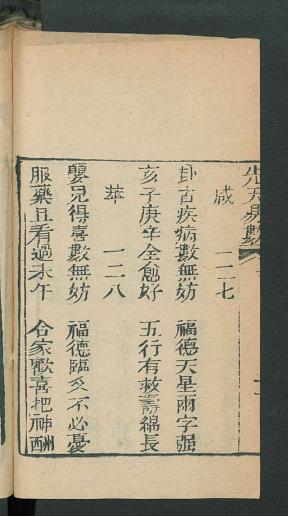 先天易數
咸 一二七
卦占疾病數無妨 福德天星兩字强
亥子庚辛全愈好 五行有救壽綿長
萃 一二八
嬰兒得喜數無妨 福德臨爻不必憂
服藥且看過未午 合家歡喜把神酬